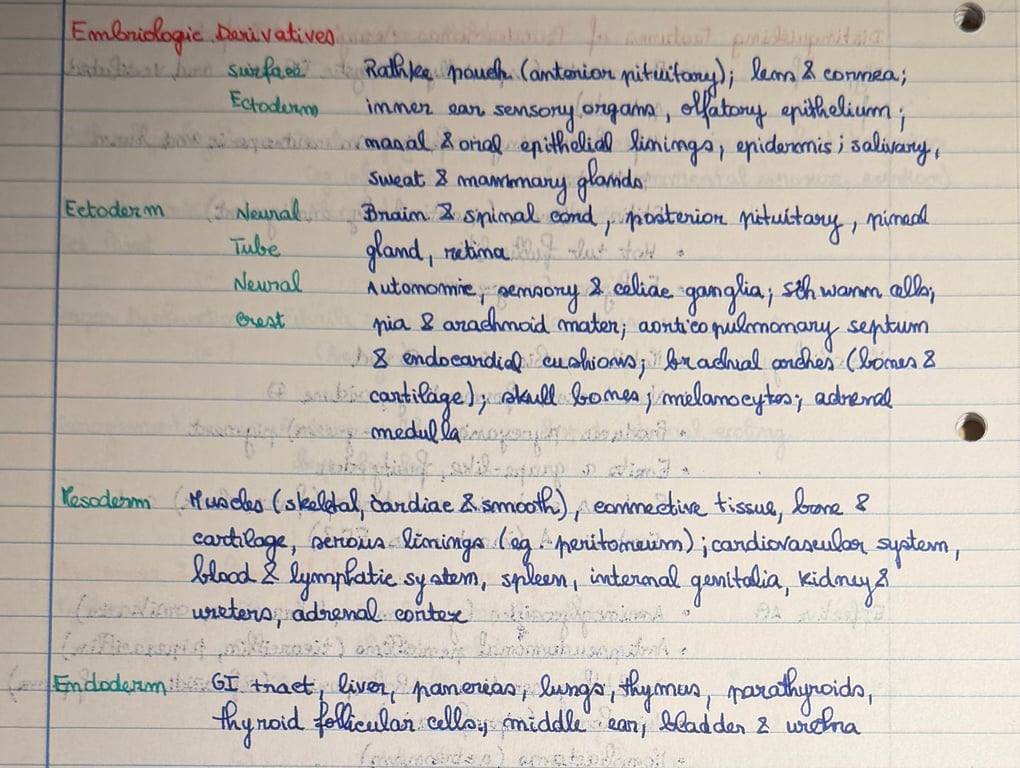 Embriologic Derivatives
surface Rathke pouch (anterior pituitary); lens & cornea;
Ectoderm inner ear sensory organs, olfatory epithelium;
nasal & oral epithelial linings, epidermis; salivary,
sweat & mammary glands.
Ectoderm Neural Brain & spinal cord, posterior pituitary, pineal
Tube gland, retina
Neural Autonomic, sensory & celiac ganglia; schwann cells;
crest pia & arachnoid mater; aorticopulmonary septum
& endocardial cushions; brachial arches (bones &
cartilage); skull bones; melanocytes; adrenal
medulla
Mesoderm Muscles (skeletal, cardiac & smooth), connective tissue, bone &
cartilage, serous linings (eg. peritoneum); cardiovascular system,
blood & lymphatic system, spleen, internal genitalia, kidney &
ureters, adrenal cortex
Endoderm GI tract, liver, pancreas, lungs, thymus, parathyroids,
thyroid follicular cells, middle ear, bladder & urethra